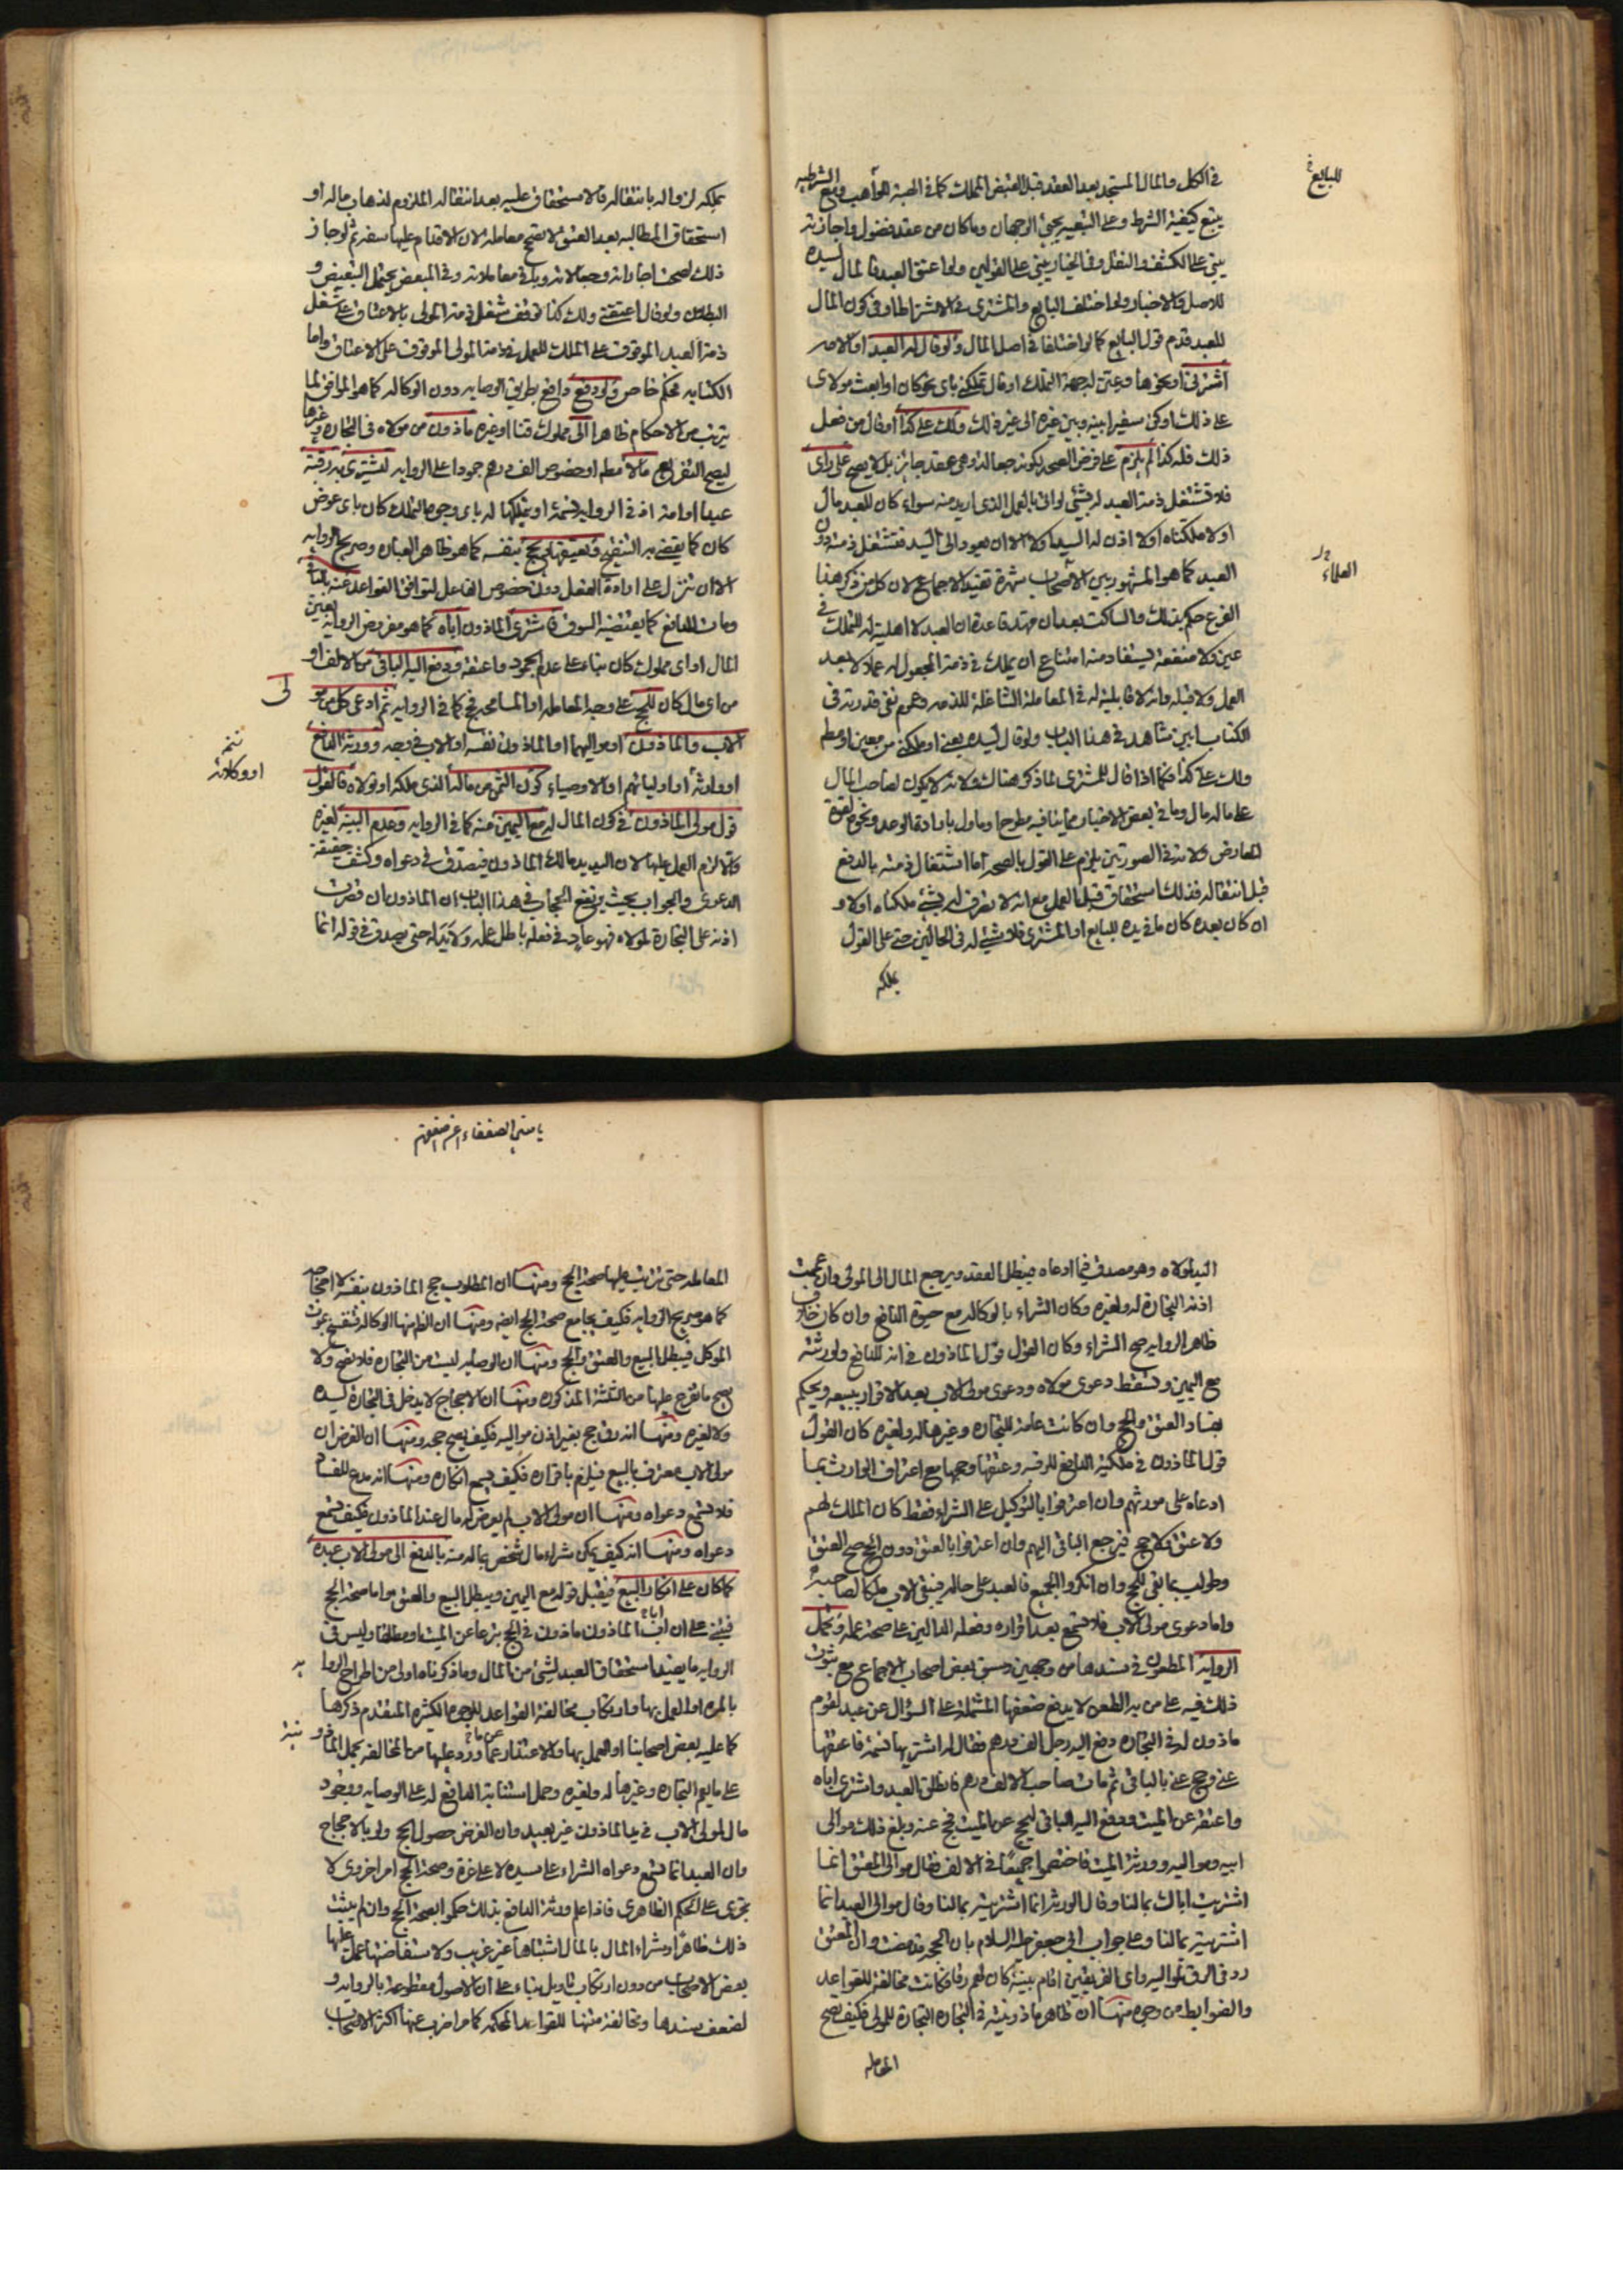 في الكل والمال المستجد بعد العقد قبل القبض للملك كما في الهبة للواهب وبيع الشرطيه
يتبع كيفية الشرط وعلى التبعيه يجيئ الوجهان وما كان من عقد فضول واجازته
يبنى على الكشف والنقل وفي الخيار يبنى على القولين ولو اعتق العبد فالمال لسيده
للاصل والاخبار ولو اختلف البايع والمشتري في الاشتراط او في كون المال
للعبد قدم قول البايع كما لو اختلفا في اصل المال ولو قال له العبد او الامه
اشترني او نحوها وعين له جهة التملك او قال تملكني باي نحو كان او ابعث مولاي
على ذلك او كن سفيرا بينه وبين غيره الى غير ذلك ولك علي كذا او قال من فعل
ذلك فله كذا لم يلزم على فرض الصحه بكونه جعاله وهي عقد جايز بل لا يصح على راي
فلا تشتغل ذمة العبد له بشئ لو اتى بالعمل الذي اريد منه سواء كان للعبد مال
او لا ملكناه او لا اذن له السيد او لا الا ان يعود الى السيد فتشتغل ذمته دون
العبد كما هو المشهور بين الاصحاب شهرة تفيد الاجماع لان كل من ذكر هذا
الفرع حكم بذلك والساكت بعد ان مهد قاعدة ان العبد لا اهلية له للتملك في
عين ولا منفعة يستفاد منه امتناع ان يملك في ذمة المجعول له عملا لا بعد
العمل ولا قبله وانه لا قابلية له في المعامله الشاغلة للذمه وعموم نفي قدرته في
الكتاب ابين شاهد في هذا الباب ولو قال لسيده بعني او ملكني من معين او مطم
ولك علي كذا فكما اذا قال للمشتري لما ذكر هناك ولانه لا يكون لصاحب المال
على ماله مال وما في بعض الاخبار مما ينافيه مطروح او ماول بارادة الوعد ونحوه لقوة
المعارض ولانه في الصورتين يلزم على القول بالصحه اما اشتغال ذمته بالدفع
قبل انتقاله فذلك استحقاق قبل العمل مع انه لا يعرف له شئ ملكناه او لا و
ان كان بعده كان ما في يده للبايع او المشتري فلا شئ له في الحالين حتى على القول
بملكه
للبايع
العلماء
بملكه لزواله بانتقاله فلا استحقاق عليه بعد انتقاله الملزوم لذهاب ماله او
استحقاق المطالبه بعد العتق لا تصح معامله لان الاقدام عليها سفه ثم لو جاز
ذلك لصحت اجاراته وجعالاته وباقي معاملاته وفي المبعض يحتمل التبعيض و
البطلان ولو قال اعتقني ولك كذا توقف شغل ذمة المولى بالاعتاق على شغل
ذمة العبد الموقوف على الملك للعمل في ذمة المولى الموقوف على الاعتاق واما
الكتابه فحكم خاص ولو دفع دافع بطريق الوصايه دون الوكاله كما هو الموافق لما
يترتب من الاحكام ظاهرا الى مملوك قنا او غيره ماذون من مولاه في التجاره وغيرها
ليصح التفريع مالا مطم او خصوص الف درهم جمودا على الروايه ليشتري به رقبة
عبدا او امة اذ في الروايه نسمة او يتملكها له باي وجوه التملك كان باي عوض
كان كما يقضي به التنقيح ويعتقها ويحج بنفسه كما هو ظاهر العباره وصريح الروايه
الا ان تنزل على ارادة الفعل دون خصوص الفاعل لتوافق القواعد عنه بالباقي
ومات الدافع كما يقتضيه السوق فاشترى الماذون اباه كما هو مفروض الروايه بعين
المال او اي مملوك كان بناء على عدم الجمود واعتقه ودفع اليه الباقي من الالف او
من اي مال كان للحج على وجه المعامله او المسامحه فحج كما في الروايه ثم ادعى كل من مو
الاب والماذون او مواليهما او الماذون نفسه او الاب في وجه وورثة الدافع
او وارثه او اوليائهم او الاوصياء كون الثمن من ماله الذي ملكه او تولاه فالقول
قول مولى الماذون في كون المال له مع اليمين منه كما في الروايه وعدم البينه لغيره
والا لزم العمل عليها لان اليد يد مالك الماذون فيصدق في دعواه وكشف حقيقة
الدعوى والجواب بحيث يرتفع الحجاب في هذا الباب ان الماذون ان قصرت
اذنه على التجارة لمولاه فهو عاد في فعله باطل عمله ولا يد له حتى يصدق في قوله انما
لى
او وكلائه
اليد لمولاه وهو مصدق فيما ادعاه فيبطل العقد ويرجع المال الى المولى وان عمت
اذنه التجارة له ولغيره وكان الشراء بالوكاله مع حيوة الدافع وان كان خلاف
ظاهر الروايه صح الشراء وكان القول قول الماذون في انه للدافع ولورثته
مع اليمين وتسقط دعوى مولاه ودعوى مولى الاب بعد الاقرار ببيعه ويحكم
بفساد العتق والحج وان كانت عامة للتجاره وغيرها له ولغيره كان القول
قول الماذون في ملكية الدافع للرقبه وعتقها وحجها مع اعتراف الوارث بما
ادعاه على مورثهم وان اعترفوا بالتوكيل على الشراء فقط كان الملك لهم
ولا عتق ولا حج فيرجع الباقي اليهم وان اعترفوا بالعتق دون الحج صح العتق
وطولب بما بقي للحج وان انكروا الجميع فالعبد على حاله فيبقى الاب ملكا لصاحبه
واما دعوى مولى الاب فلا تسمع بعد اقراره وفعله الدالين على صحة عمله وتحمل
الرواية المطعون في سندها من وجهين وسبق بعض اصحاب الاجماع مع ثبوت
ذلك فيه على من به الطعن لا يدفع ضعفها المشتملة على السؤال عن عبد لقوم
ماذون له في التجاره دفع اليه رجل الف درهم فقال له اشتر بها نسمة فاعتقها
عني وحج عني بالباقي ثم مات صاحب الالف درهم فانطلق العبد واشترى اباه
واعتقه عن الميت ودفع اليه الباقي ليحج عن الميت فحج عنه وبلغ ذلك موالي
ابيه ومواليه وورثة الميت فاختصموا جميعا في الالف فقال موالي المعتق انما
اشتريت اباك بمالنا وقال الورثه انما اشتريته بمالنا وقال موالي العبد انما
اشتريته بمالنا وعلى جواب ابي جعفر عليه السلام بان الحجه قد مضت وان المعتق
رد في الرق لمواليه واي الفريقين اقام بينة كان لهم رقا وكانت مخالفة للقواعد
والضوابط من وجوه منها ان ظاهر ماذونيته في التجاره التجارة للمولى فكيف تصح
المعامله
يا معين الضعفاء
المعامله حتى تترتب عليها صحة الحج ومنها ان المطلوب حج الماذون بنفسه لا احجاجه
كما هو صريح الروايه فكيف يجامع صحة الحج ايضه ومنها ان الظ منها الوكاله فتنفسخ بموت
الموكل فيبطل البيع والعتق والحج ومنها ان الوصايه ليست من التجاره فلا تصح ولا
يصح ما تفرع عليها من الثلثة المذكوره ومنها ان الاحجاج لا يدخل في التجارة لسيده
ولا لغيره ومنها انه رق حج بغير اذن مواليه فكيف يصح حجه ومنها ان الفرض ان
مولى الاب معترف بالبيع فيلزم باقراره فكيف يسمع انكاره ومنها انه مدع للفساد
فلا تسمع دعواه ومنها ان مولى الاب لم يعرض له مال عند الماذون فكيف تسمع
دعواه ومنها انه كيف يمكن شراء مال شخص بماله منه بالدفع الى مولى الاب عبده
كما كان على انكار البيع فيقبل قوله مع اليمين ويبطل البيع والعتق واما صحة الحج
فيبنى على ان اب الماذون ماذون في الحج تبرعا عن الميت او مطلقا وليس في
الروايه ما يفيد استحقاق العبد لشئ من المال وما ذكرناه اولى من اطراح الروا يه
بالمره او العمل بها وارتكاب مخالفة القواعد للوجوه الكثيره المتقدم ذكرها
كما عليه بعض اصحابنا او العمل بها والاعتذار عما ورد عليها من المخالفه بحمل الماذو نيته
على ما يعم التجاره وغيرها له ولغيره وحمل استنابة الدافع له على الوصايه ووجود
مال لمولى الاب في يد الماذون غير بعيد وان الغرض حصول الحج ولو بالاحجاج
وان العبد انما تسمع دعواه الشراء على سيده لا على غره وصحة الحج امر اخروي لا
يجري على الحكم الظاهري فاذا علم ورثة الدافع بذلك حكموا بصحة الحج وان لم يثبت
ذلك ظاهرا وشراء المال بالمال اشتباها غير غريب ولاستفاضتها عمل عليها
بعض الاصحاب من دون ارتكاب تاويل بناء على ان الاصول مقطوعة بالروايه و
لضعف سندها ومخالفة متنها للقواعد المحكمه كما مر اضرب عنها اكثر الاصحاب